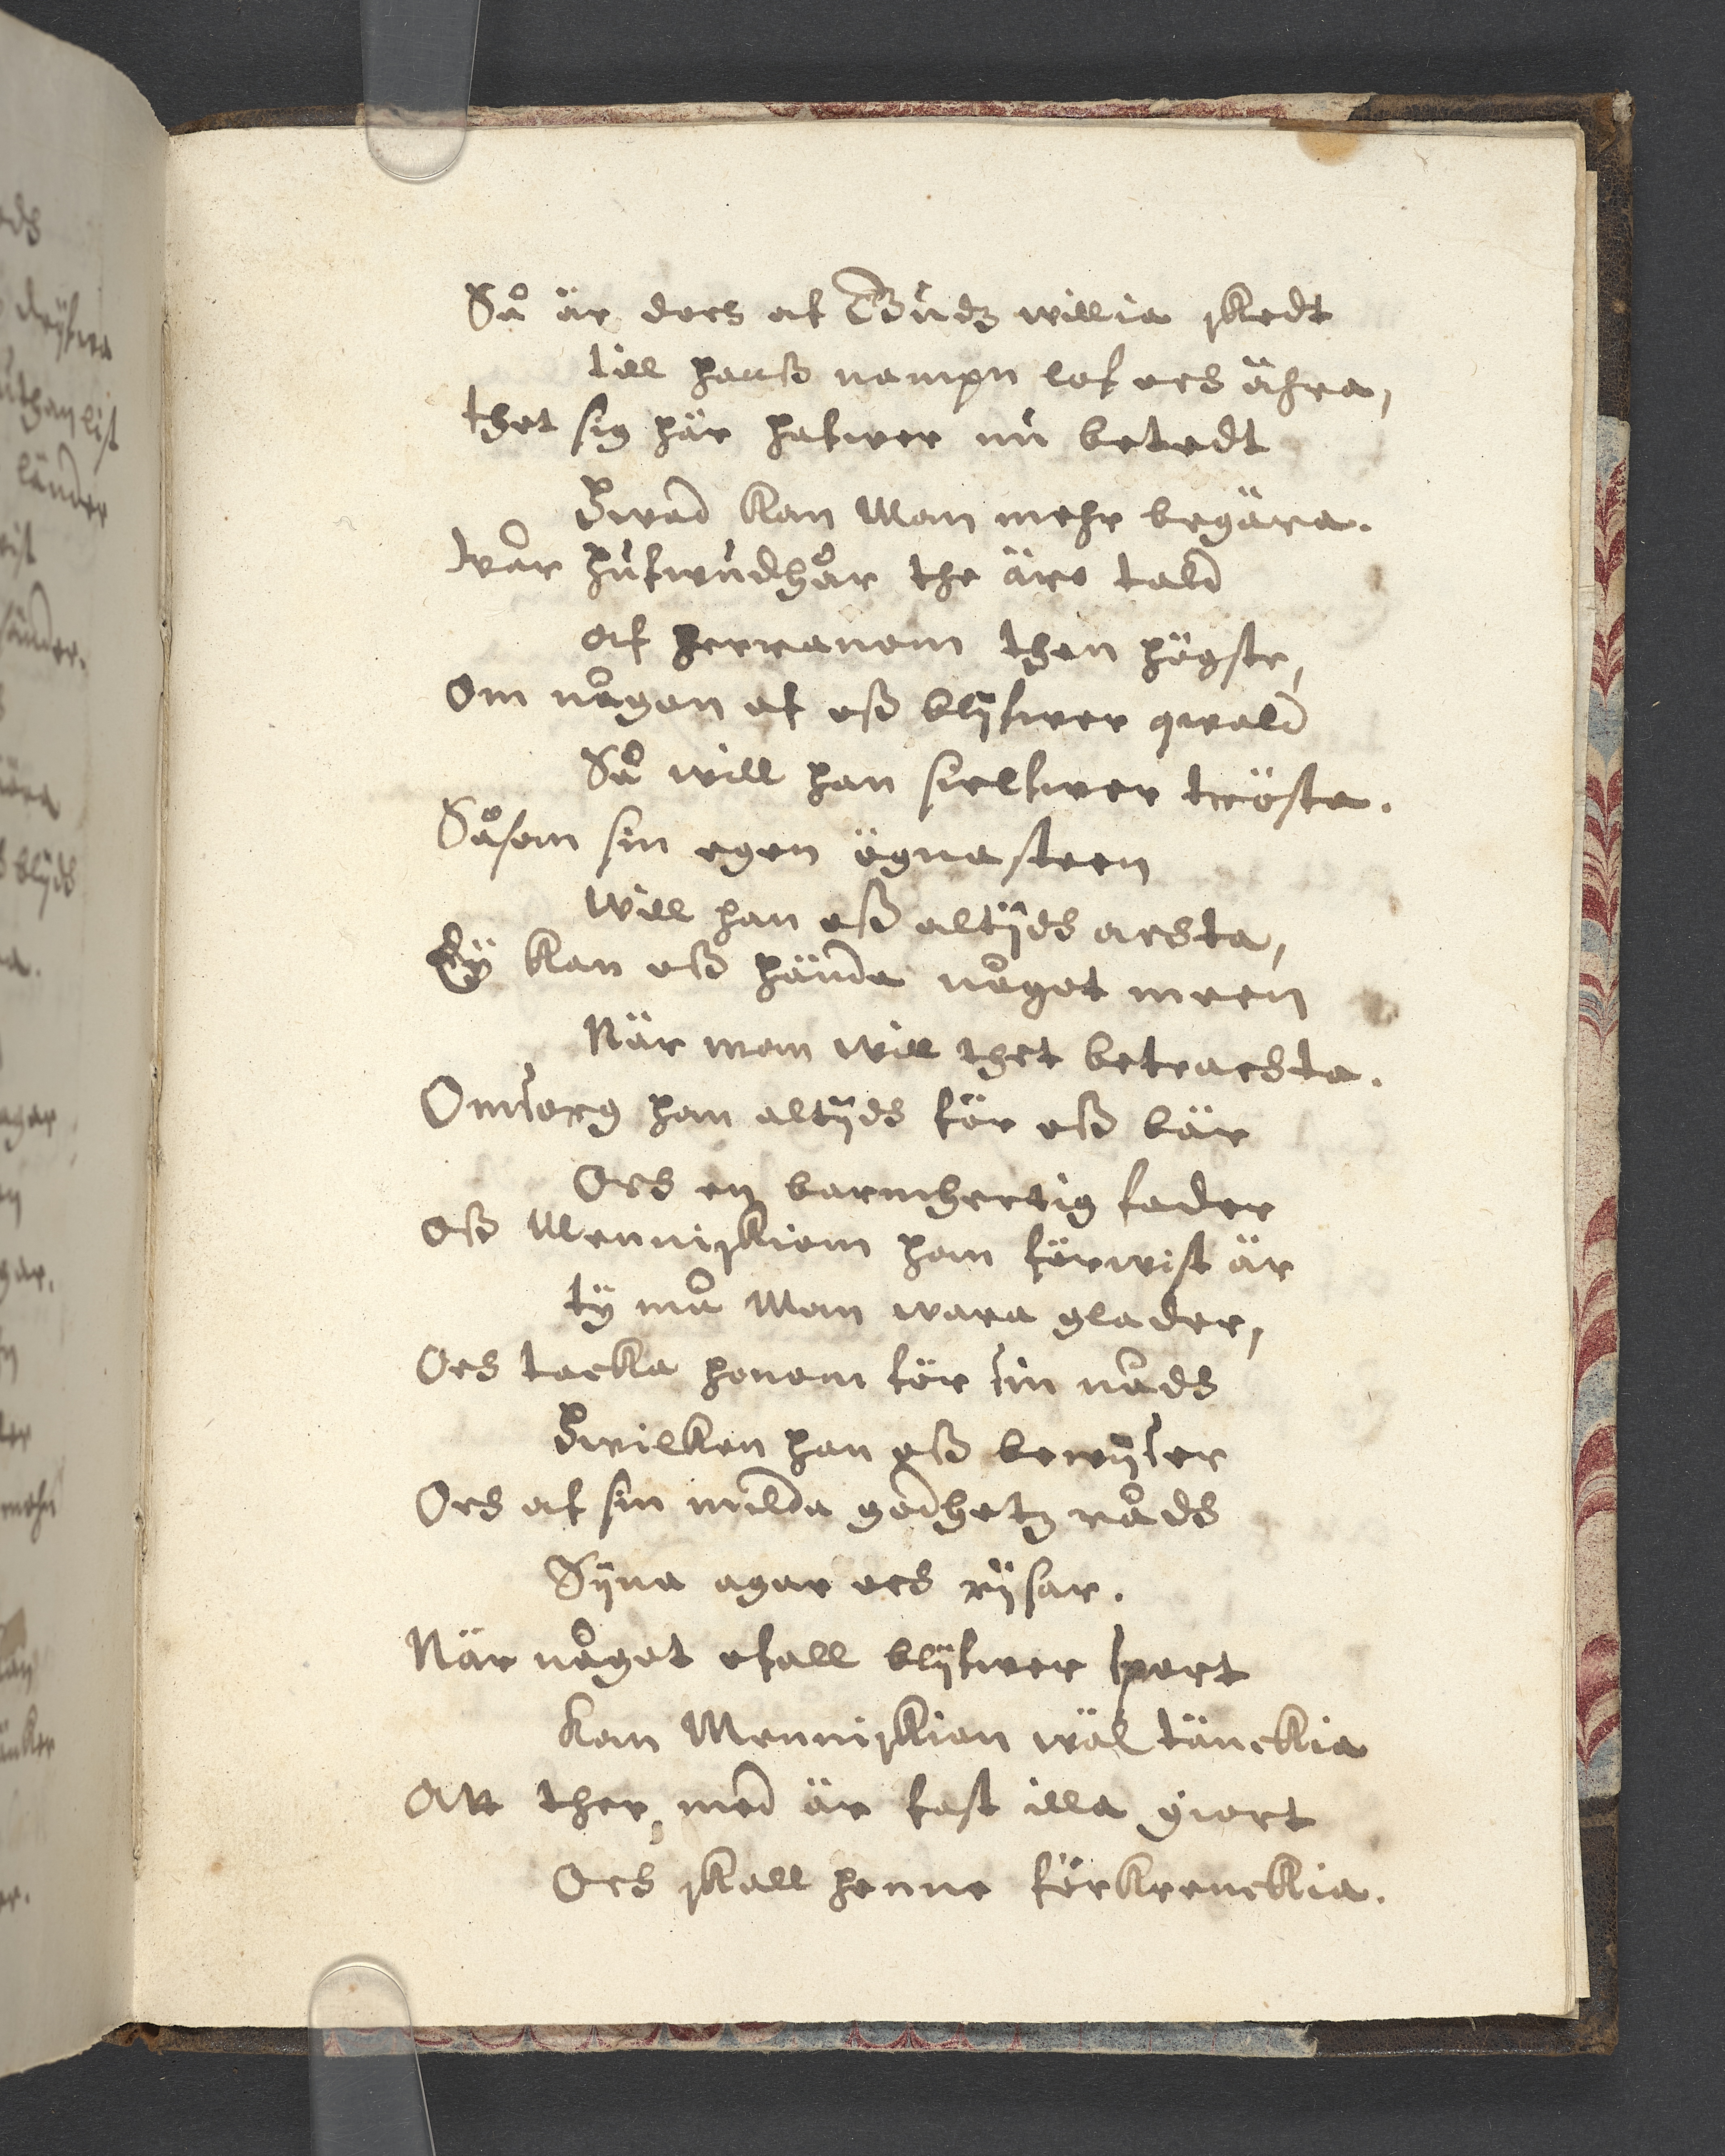 Så är doch af Gudz willia skedt
till hanß nampn lof och ähra,
thet sig här hafwer nu betedt
Hwad kan Man mehr begära.
wår hufwudhår the äre tald
af herranom then högste,
Om någon af oß blijfwer qwald
Så will han sielfwer tröste.
Såsom sin egen ögnasteen
will han oß altijds achta,
Eÿ kan oß hända något meen
När man will thet betrachta.
Omsorg han altijds för oß bär
Och en barmhertig fader
oß Menniskiom han förwist är
tÿ må Man wara glader,
Och tacka honom för sin nåds
Hwilken han oß bewijser
Och af sin milda godhetz råds
Sijna agar och rijsar.
När något ofall blijfwer sport
kan Menniskian wäl tänckia
Att ther med är fast illa giort
Och skall henne förkrenckia.